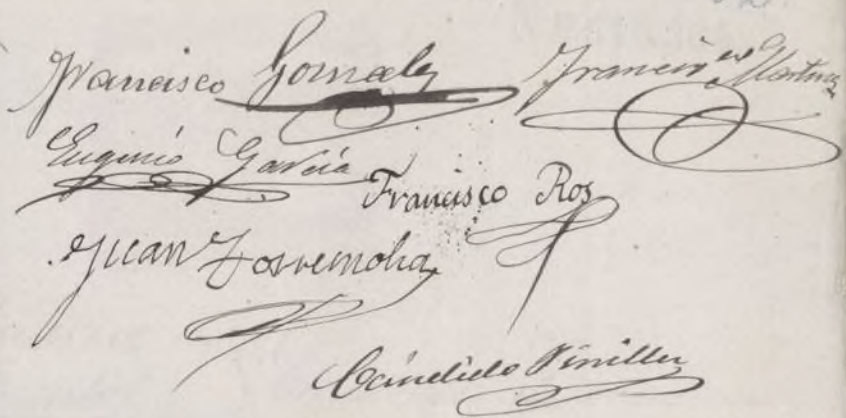 Francisco Gomzalez Francisco Martinez
Eugenio García
Francisco Ros
Juan
Cándido Pinilla